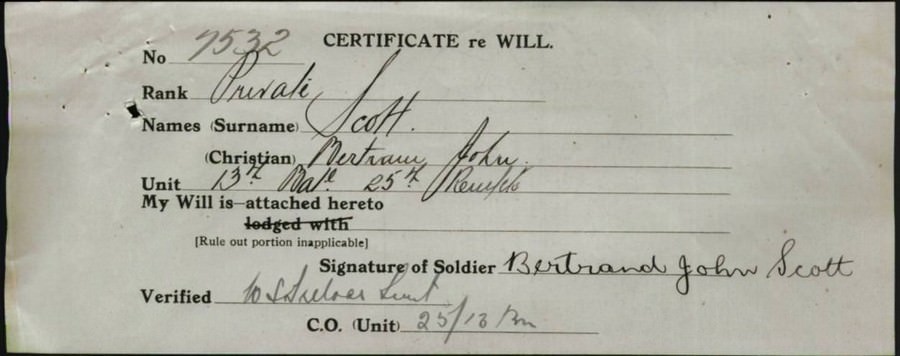 CERTIFICATE re WILL.
No 7532
Rank Private
Names (Surname) Scott.
(Christian) Bertram John.
Unit 13th Bat. 25th Reinf
My Will is attached hereto
lodged with
[Rule out portion inapplicable]
Signature of Soldier Bertrand John Scott
Verified Lieut
C.O. (Unit) 25/13 Bn